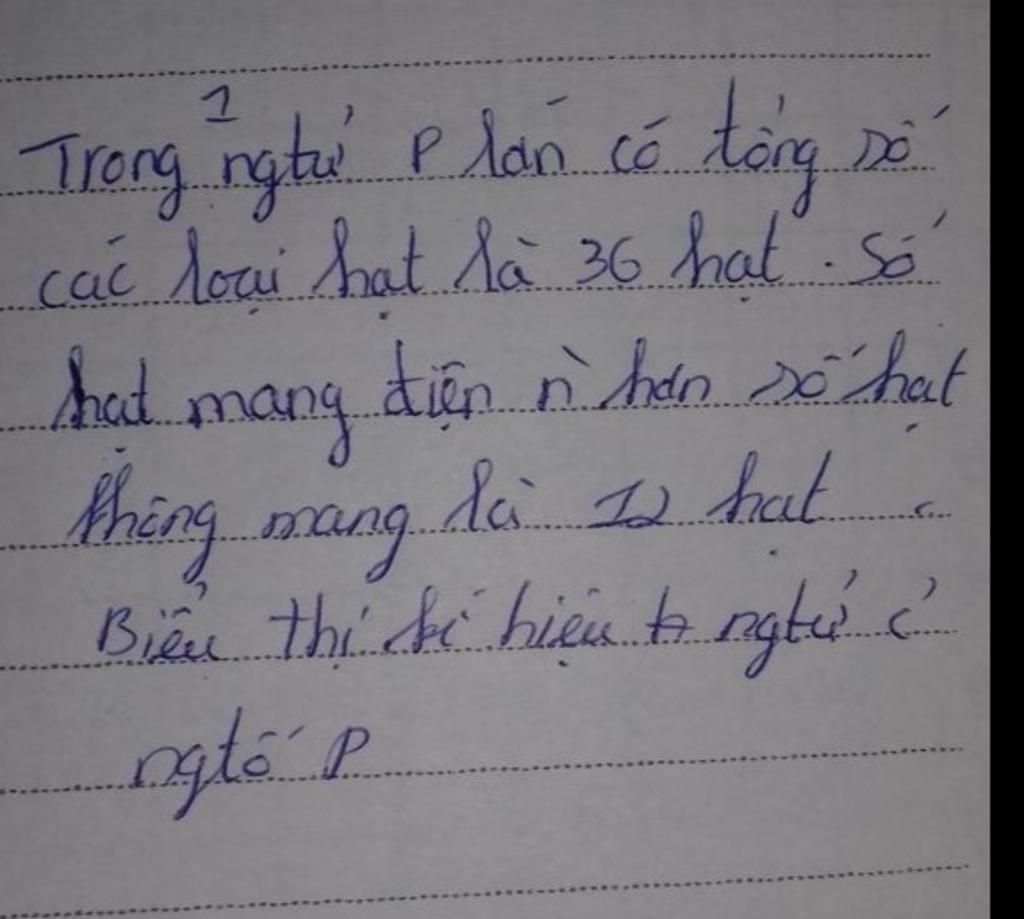 Trong 1 ngtử P lớn có tổng số
các loại hạt là 36 hạt. Số
hạt mang điện n` hơn số hạt
không mang là 12 hạt.
Biểu thị kí hiệu ngtử c'
ngtố P